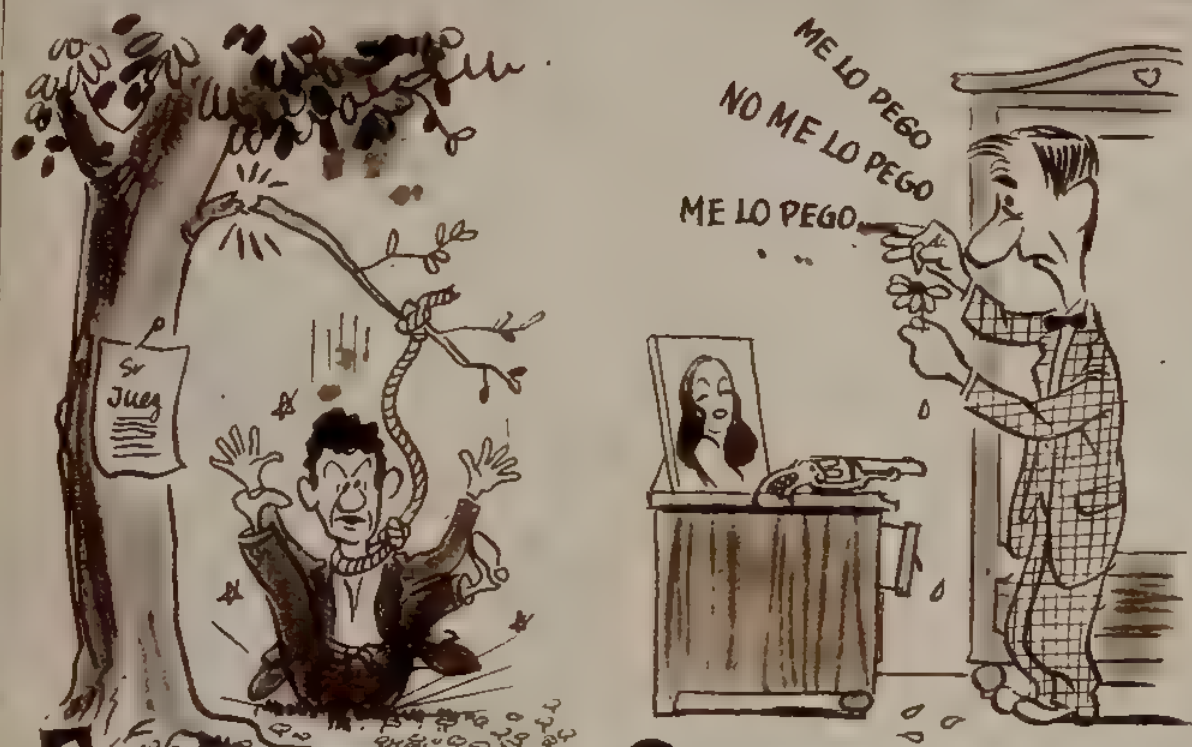 Sr
Juez
ME LO PEGO
NO ME LO PEGO
ME LO PEGO..